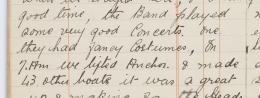 good time, the Band played
some very good Concerts. one
they had fancy Costumes, On
7.Am we lifted Anchor. & made
43 other boats it was a great